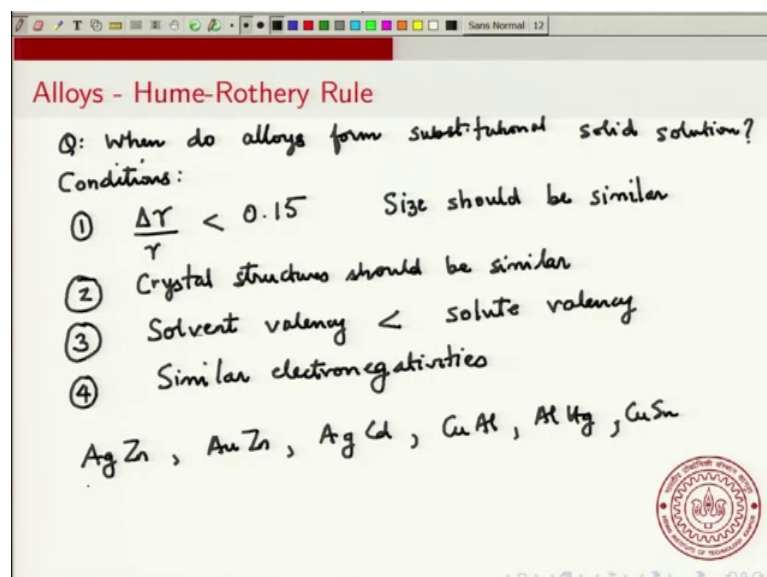 Sans Normal 12
Alloys - Hume-Rothery Rule
Q: When do alloys form substitutional solid solution?
Conditions:
① Δr/r < 0.15 Size should be similar
② Crystal structures should be similar
③ Solvent valency < solute valency
④ Similar electronegativities
AgZn, AuZn, AgCd, CuAl, AlHg, CuSn